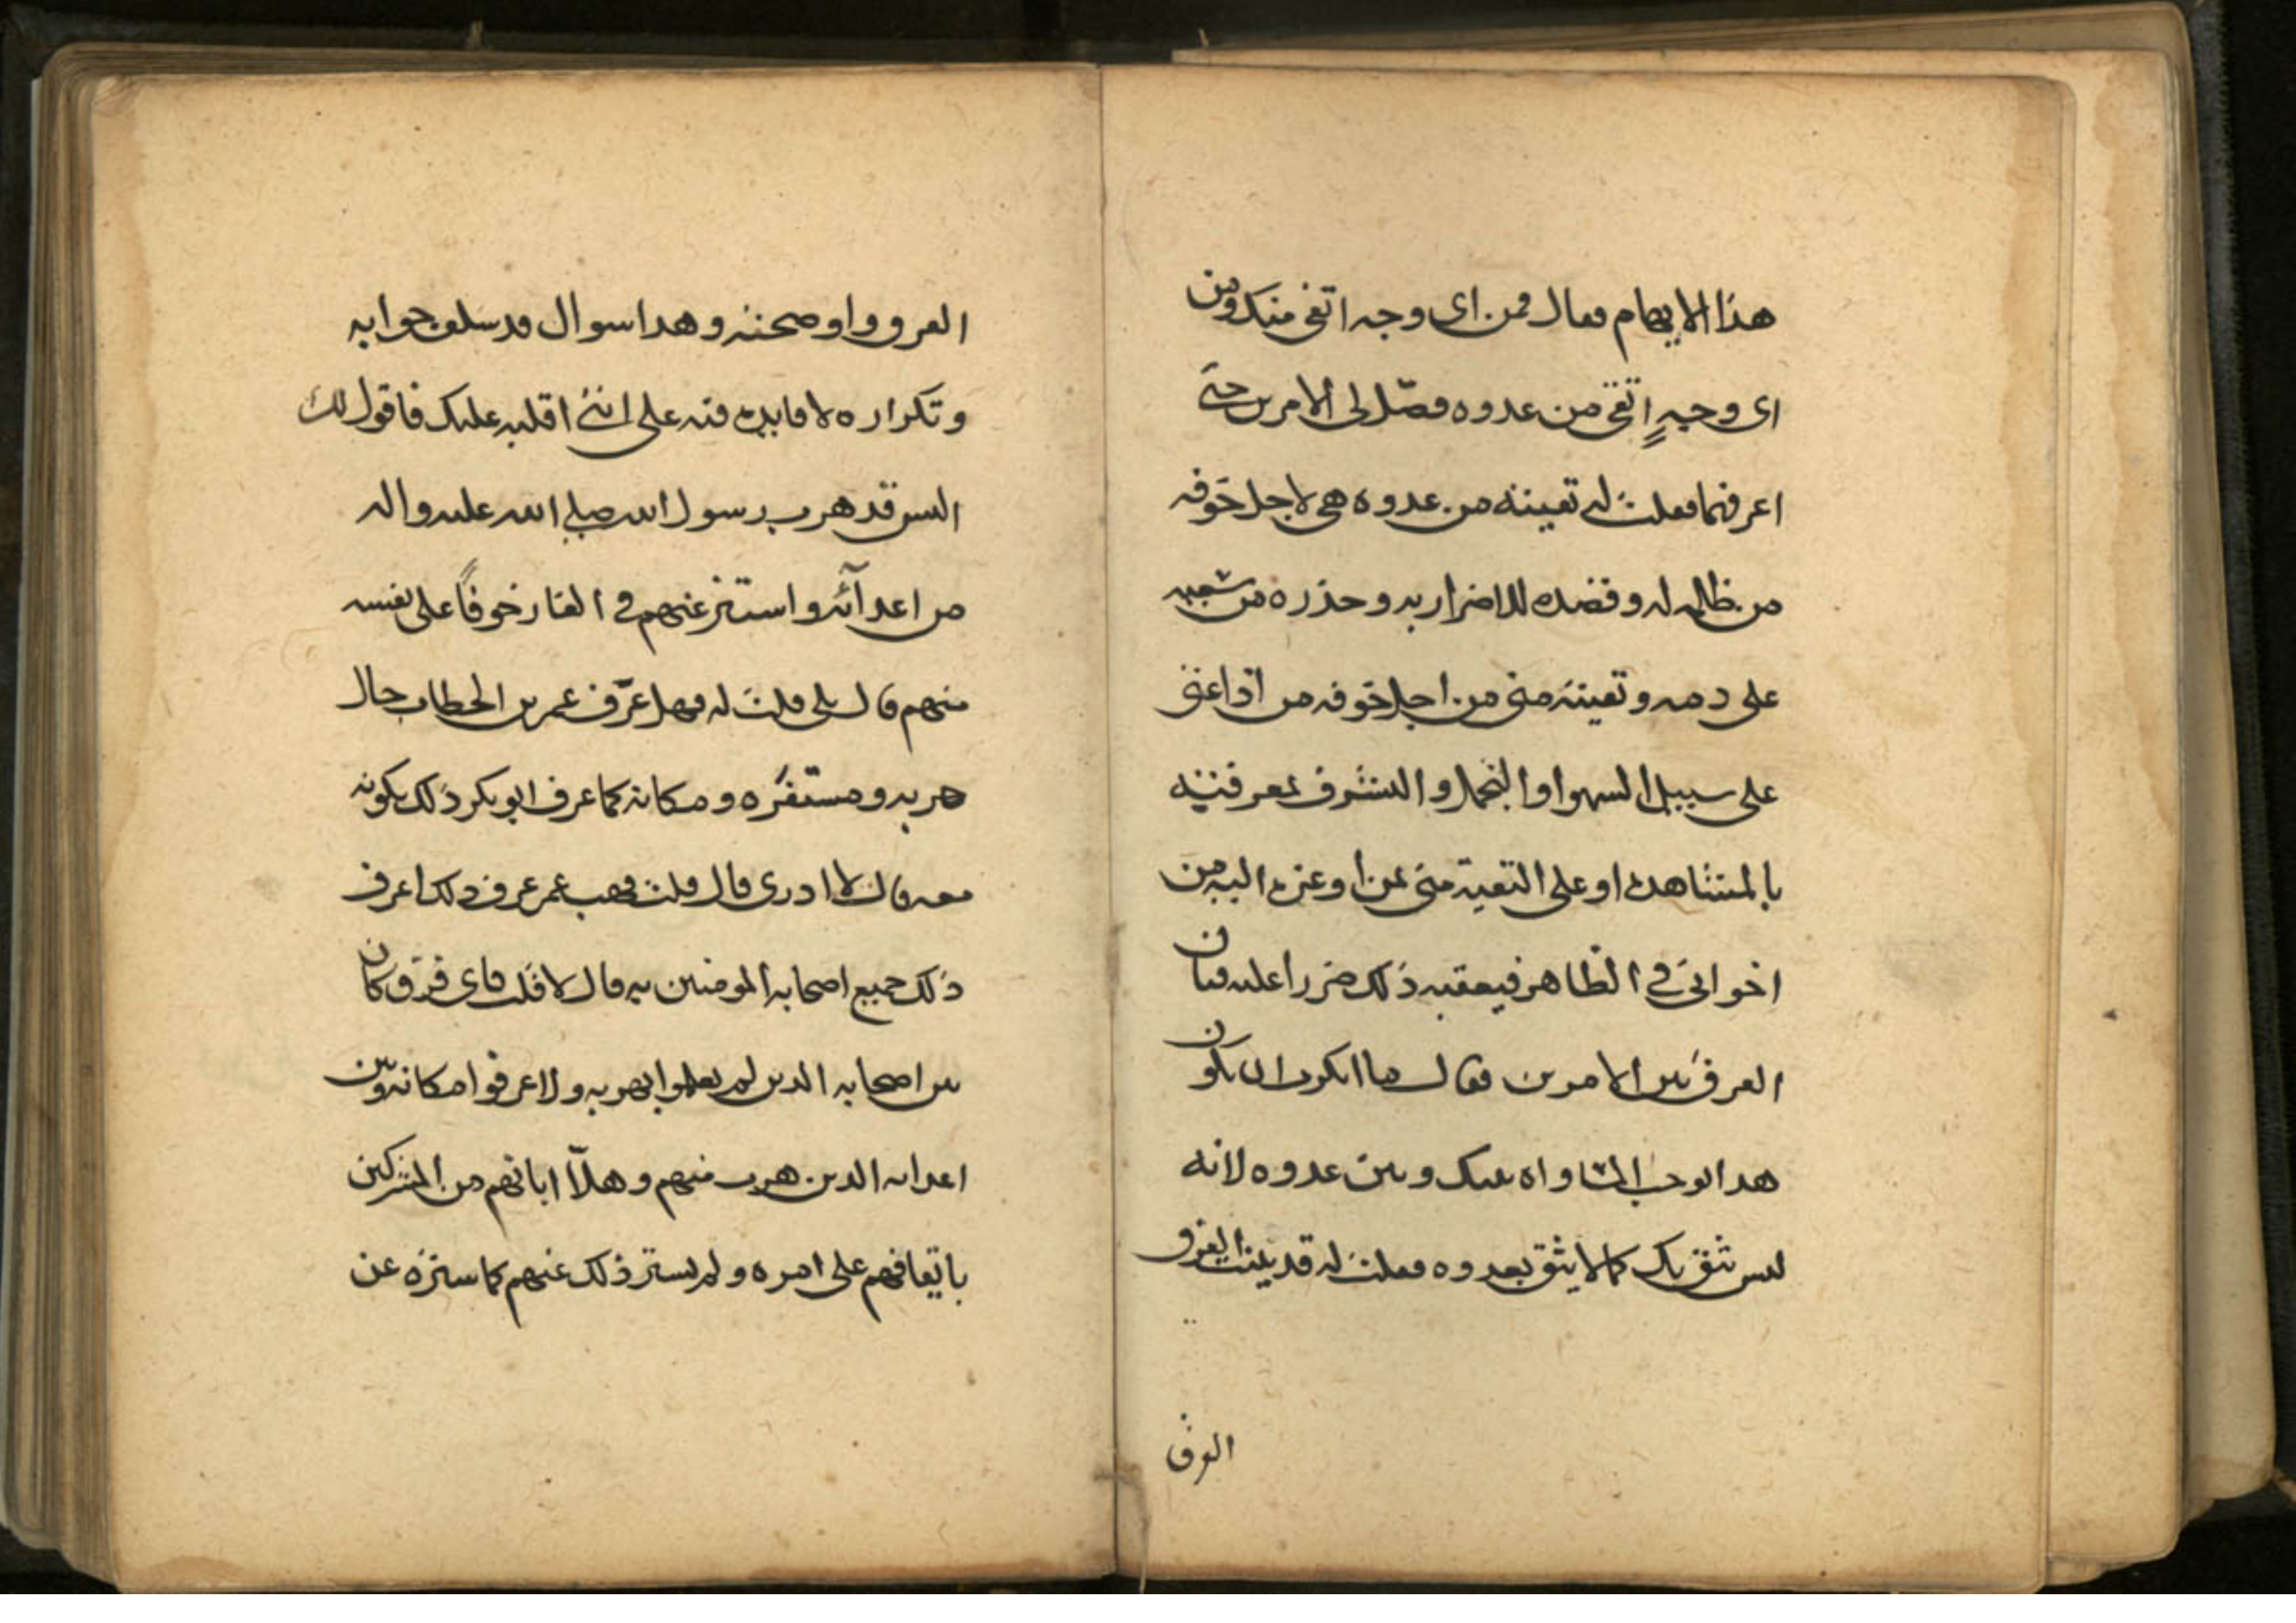 هذا الايهام فقال فمن اى وجه اتقى منك ومن
اى وجهٍ اتقى من عدوه فصّل لى الامرين حتى
اعرفهما فقلت له تقيته من عدوه هى لاجل خوفه
من ظالمه له وقصده للاضرار به وحذره من سعيه
على دمه وتقيته منى من اجل خوفه من اذاعتى
على سبيل السهو او التجمل والتشرف بمعرفته
بالمشاهدة او على التقية منى بمن اوعزه اليه من
اخوانى فى الظاهر فيعقبه ذلك ضررا عليه فبان
الفرق بين الامرين فقال ما انكرت ان يكون
هذا يوجب المساواه بينك وبين عدوه لانه
ليس يثق بك كما لا يثق بعدوه فقلت له قد بينت الفرق
الفرق
الفرق واوضحته وهذا سوال قد سلف جوابه
وتكراره لا فايدة فيه على اننى اقلبه عليك فاقول لك
اليس قد هرب رسول الله صلى الله عليه واله
من اعدآئه واستتر عنهم فى الغار خوفًا على نفسه
منهم قال بلى قلت له فهل عرّف عمر بن الخطاب حال
هربه ومستقره ومكانه كما عرف ابو بكر ذلك بكونه
معه قال لا ادرى قال قلت فهب عمر عرف ذلك اعرف
ذلك جميع اصحابه المومنين به قال لا قلت فاى فرق كان
بين اصحابه الذين لم يعلموا بهربه ولا عرفوا مكانه وبين
اعدائه الذين هرب منهم وهلّا ابانهم من المشركين
بايقافهم على امره ولم يستر ذلك عنهم كما ستره عن